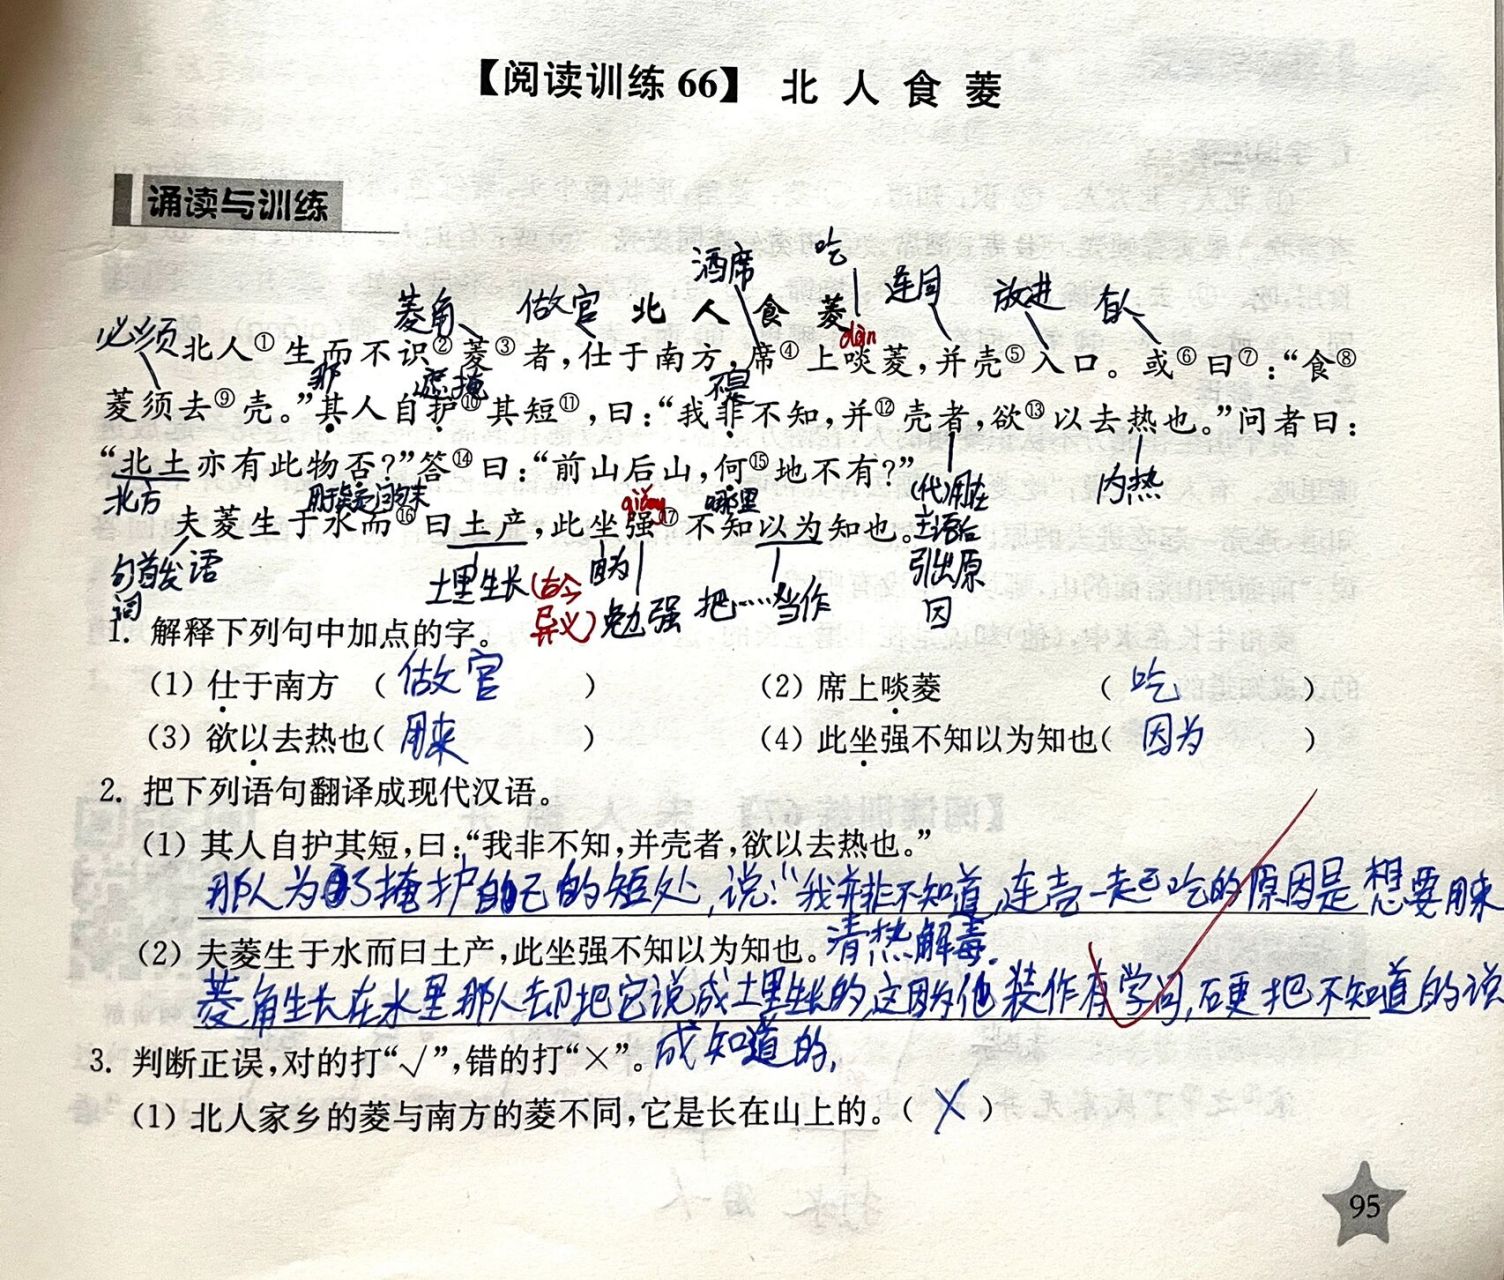 【阅读训练 66】 北 人 食 菱
诵读与训练
酒席 吃
菱角 做官 北 人 食 菱 连同 放进 有人
必须 dàn
北人①生而不识②菱③者,仕于南方,席④上啖菱,并壳⑤入口。或⑥曰⑦:“食⑧
那 遮掩 不是
菱须去⑨壳。”其人自护⑩其短⑪,曰:“我非不知,并⑫壳者,欲⑬以去热也。”问者曰:
“北土亦有此物否?”答⑭曰:“前山后山,何⑮地不有?”
北方 用于疑问句末 qiǎng 哪里 (代)用在 内热
夫菱生于水而⑯曰土产,此坐强⑰不知以为知也。主语后
句首发语 土里生长(古今 因为 引出原
词 异义) 勉强 把……当作 因
1. 解释下列句中加点的字。
(1) 仕于南方 ( 做官 ) (2) 席上啖菱 ( 吃 )
(3) 欲以去热也( 用来 ) (4) 此坐强不知以为知也( 因为 )
2. 把下列语句翻译成现代汉语。
(1) 其人自护其短,曰:“我非不知,并壳者,欲以去热也。”
那人为了掩护自己的短处,说:“我并非不知道,连壳一起吃的原因是想要用来
(2) 夫菱生于水而曰土产,此坐强不知以为知也。清热解毒。
菱角生长在水里那人却把它说成土里生长的,这因为他装作有学问,硬把不知道的说
3. 判断正误,对的打“√”,错的打“×”。成知道的,
(1) 北人家乡的菱与南方的菱不同,它是长在山上的。( X )
95